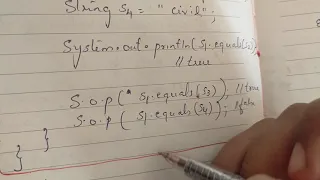 String s4 = "civil";
System.out.println(s1.equals(s2));
//true
S.o.p(" s1.equals(s3)); //true
S.o.p( s1.equals(s4)); //false
}
}